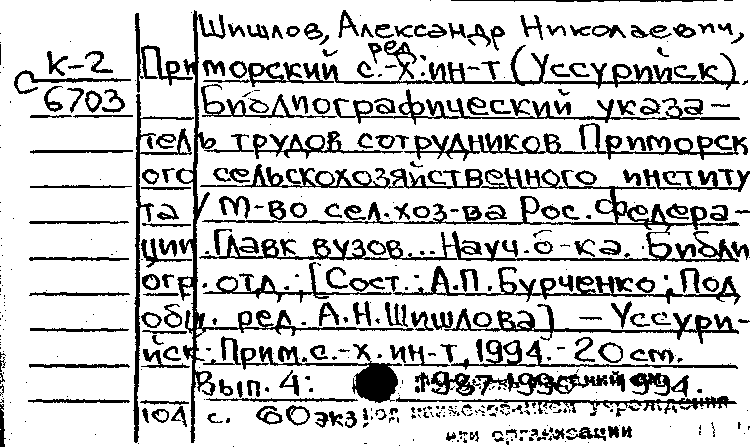 Шишлов, Александр Николаевич,
ред.
К-2
Приморский с.-х. ин-т (Уссурийск).
С
6703
Библиографический указа-
тель трудов сотрудников Приморск
ого сельскохозяйственного институ
та / М-во сел.хоз-ва Рос.Федера-
ции.Главк вузов...Науч.б-ка. Библи
огр.отд.; [Сост.: А.П.Бурченко; Под
общ. ред. А.Н.Шишлова] - Уссури-
йск: Прим.с.-х. ин-т, 1994. - 20 см.
Вып. 4: 1987-1990 1994.
104 с. 60экз.
под наименованием учреждения
или организации